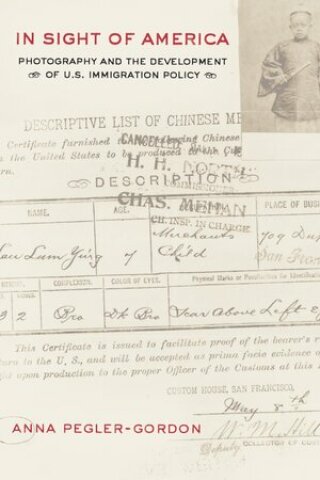 IN SIGHT OF AMERICA
PHOTOGRAPHY AND THE DEVELOPMENT
OF U.S. IMMIGRATION POLICY
DESCRIPTIVE LIST OF CHINESE ME
Certificate furnished to Chinese
the United States to be produced to the
CANCELLED
H. H. NORTH
DESCRIPTION
COMMISSIONER
CHAS. MEHAN
CH. INSP. IN CHARGE
NAME. AGE. PLACE OF BUS
Lum Ying 7 Merchants Child 709 Du
San Fran
COMPLEXION. COLOR OF EYES. Physical Marks or Peculiarities for Identification
2 Bro Dk Bro Scar Above Left E
This Certificate is issued to facilitate proof of the bearer's r
turn to the U. S., and will be accepted as prima facie evidence o
upon production to the proper Officer of the Customs at this
CUSTOM HOUSE, SAN FRANCISCO,
May 8th
ANNA PEGLER-GORDON
W. M. Hill
Deputy COLLECTOR OF CUST